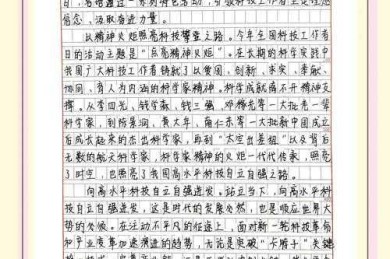 信念、汲取奋进力量。
以精神火炬照亮科技攀登之路。今年全国科技工作
者日的活动主题是“点亮精神火炬”。在长期的科学实践中
我国广大科技工作者铸就了以爱国、创新、求实、奉献、
协同、育人为内涵的科学家精神。科学成就离不开精神支
撑。从李四光、钱学森、钱三强、邓稼先等一大批老一辈
科学家,到陈景润、黄大年、南仁东等一大批新中国成立
后成长起来的杰出科学家,再到“太空出差组”以及背后
无数的航天科学家,科学家精神的火炬一代代传承,照亮
了时空,也照亮了我国高水平科技自立自强之路。
向高水平科技自立自强进发。站立当下,向高水平科
技自立自强进发,这是时代的发展必然,也是顺应世界大
势的必然。在这动人不平凡的征途上,面对新一轮科技革命
和产业变革加速演进的趋势,无论是突破“卡脖子”关键